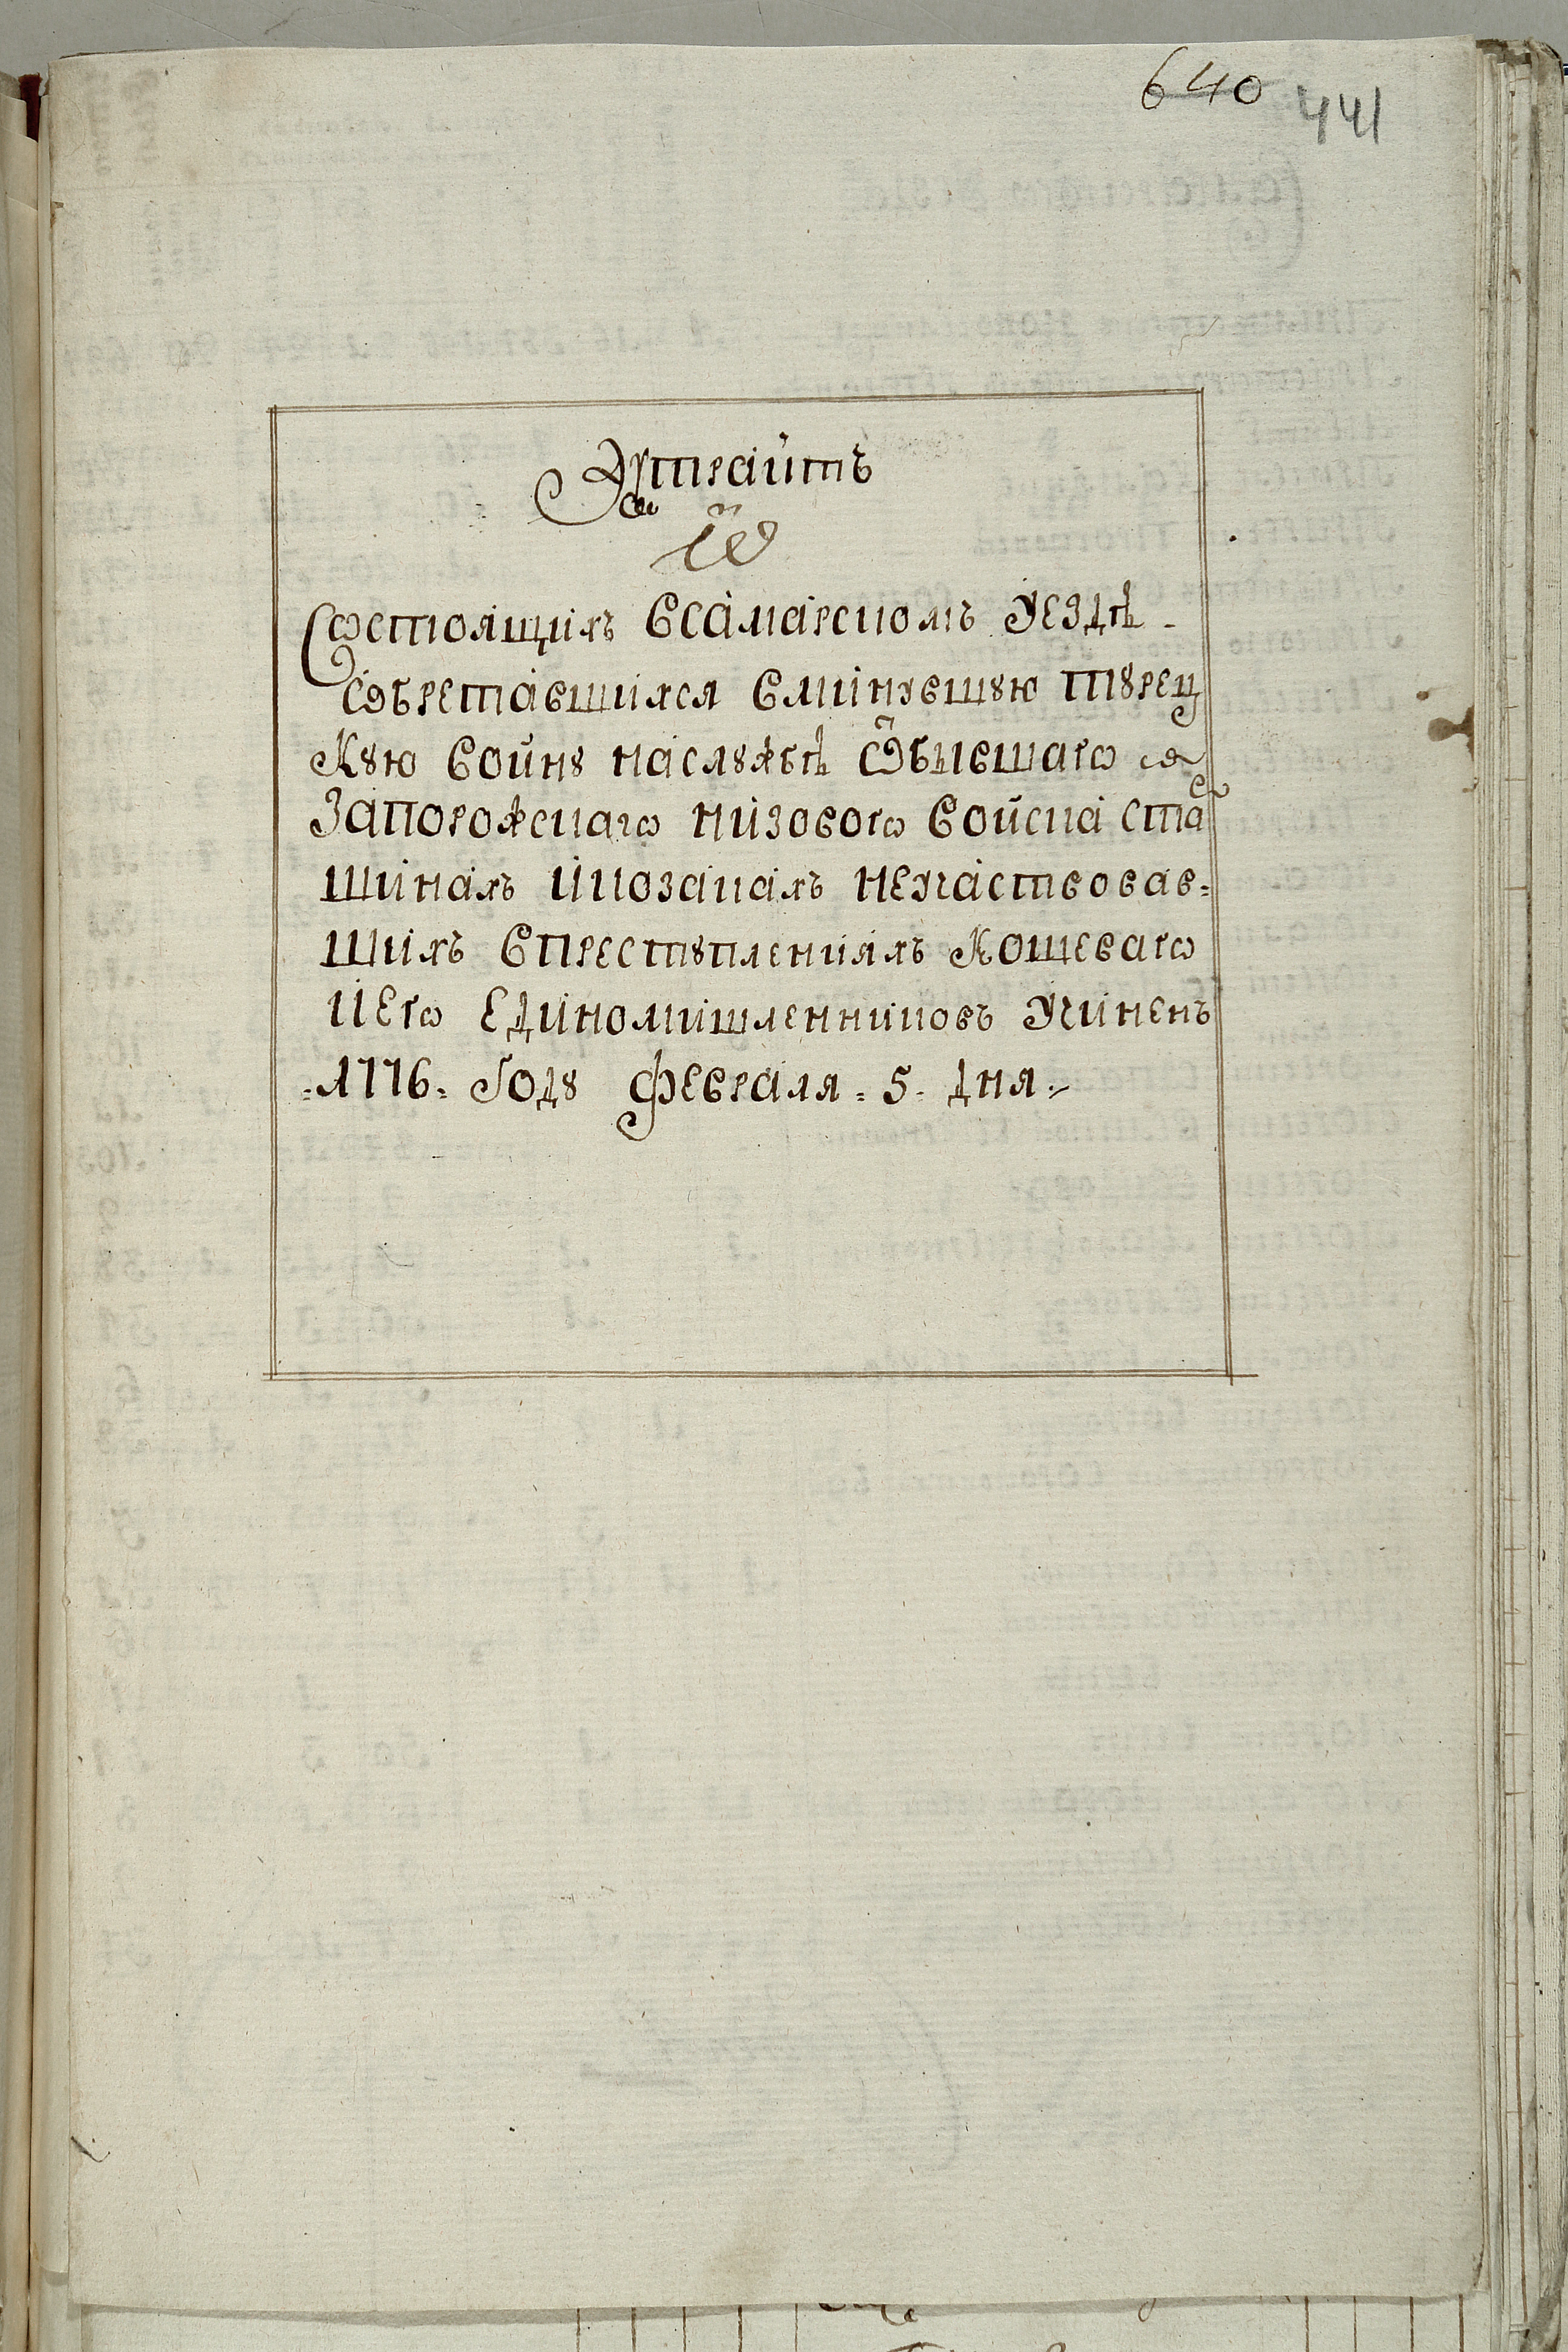 640 441
Экстрактъ
Ѡ
Состоящихъ всамарскомъ уездѣ
Ѡбретавшихся вминувшую турец
кую войну наслужбѣ Ѡбывшаго
Запорожскаго низового войска ста
шинахъ икозакахъ неучаствовав=
шихъ впреступленияхъ Кошеваго
иего единомишленниковъ учиненъ
1776. Году февраля. 5. дня